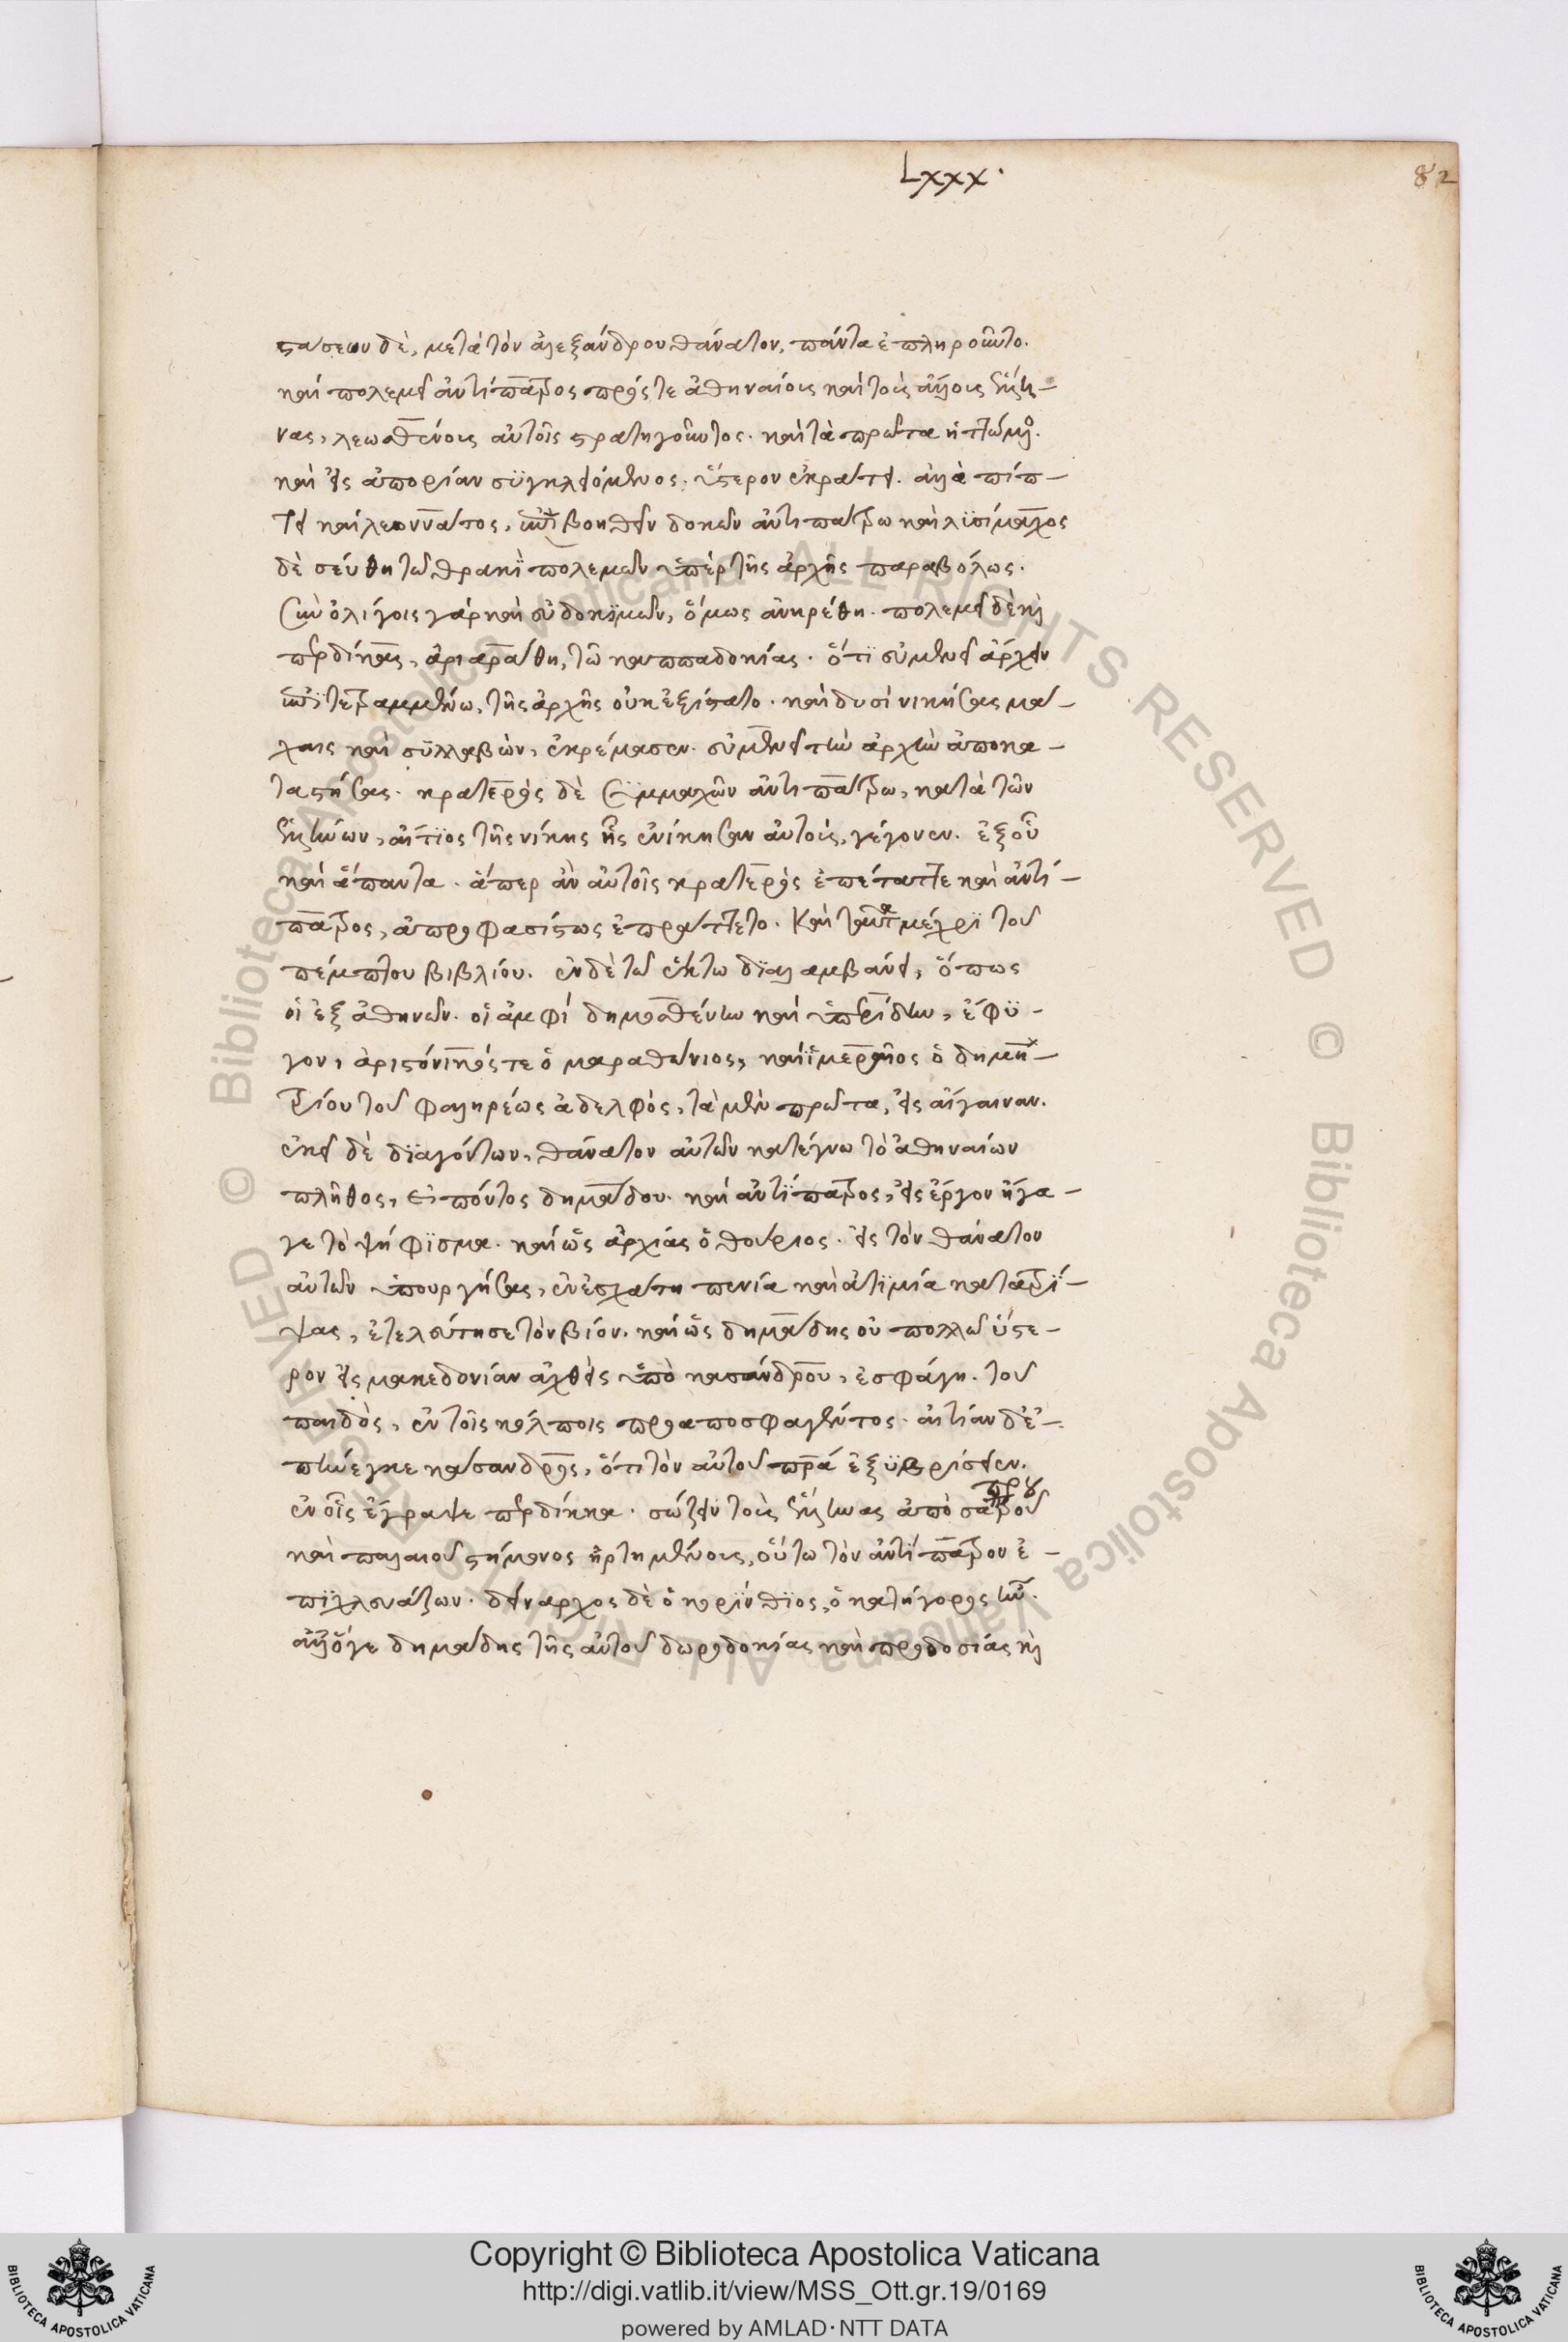 Lxxx.
82
στάσεων δὲ, μετὰ τὸν ἀλεξάνδρου θάνατον, πάντα ἐπληροῦντο.
καὶ πολεμεῖ ἀντίπατρος πρός τε ἀθηναίοις καὶ τοὺς ἄλλους ἕλλη-
νας, λεωσθένους αὐτοῖς στρατηγοῦντος. καὶ τὰ πρῶτα ἡττώμενος.
καὶ εἰς ἀπορίαν συγκλειόμενος. ὕστερον ἐκράτει. ἀλλὰ πίπ-
τει καὶ λεοννάτος, ἐπιβοηθεῖν δοκῶν ἀντιπάτρω καὶ λϋσίμαχος
δὲ σεύθη τῶ θρακὶ πολεμῶν ὑπὲρ τῆς ἀρχῆς παραβόλως.
σὺν ὀλίγοις γὰρ καὶ εὐδοκιμῶν, ὅμως ἀνηρέθη. πολεμεῖ δὲ καὶ
περδίκκας, ἀριαράθη, τῶ καππαδοκίας. ὅτι εὐμενεῖ ἄρχειν
ἐπιτετραμμένω, τῆς ἀρχῆς οὐκ ἐξίστατο. καὶ δυσὶ νικήσας μά-
χαις καὶ συλλαβὼν, ἐκρέμασεν. εὐμενεῖ τὴν ἀρχὴν ἀποκα-
ταστήσας. κρατερὸς δὲ συμμαχῶν ἀντιπάτρω, κατὰ τῶν
ἑλλήνων, αἴτιος τῆς νίκης ἧς ἐνίκησαν αὐτοὺς, γέγονεν. ἐξ οὗ
καὶ ἅπαντα. ἅπερ ἂν αὐτοῖς κρατερὸς ἐπέταττε καὶ ἀντί-
πατρος, ἀπροφασίστως ἐπράττετο. Καὶ ταῦτα μέχρι τοῦ
πέμπτου βιβλίου. ἐν δὲ τῶ ἕκτω διαλαμβάνει, ὅπως
οἱ ἐξ ἀθηνῶν. οἱ ἀμφὶ δημοσθένην καὶ ὑπερίδην, ἔφυ-
γον, ἀριστόνικός τε ὁ μαραθώνιος, καὶ ἱμεραῖος ὁ δημη-
τρίου τοῦ φαληρέως ἀδελφὸς, τὰ μὲν πρῶτα, εἰς αἴγαιναν.
ἐκεῖ δὲ διαγόντων, θάνατον αὐτῶν κατέγνω τὸ ἀθηναίων
πλῆθος, εἰπόντος δημάδου. καὶ ἀντίπατρος, εἰς ἔργον ἤγα-
γε τὸ ψήφϊσμα. καὶ ὡς ἀρχίας ὁ θούριος. εἰς τὸν θάνατον
αὐτῶν ὑπουργήσας, ἐν ἐσχάτη πενία καὶ ἀτιμία κατατρί-
ψας, ἐτελεύτησε τὸν βίον. καὶ ὡς δημάδης οὐ πολλῶ ὕστε-
ρον εἰς μακεδονίαν ἀχθεὶς ὑπὸ κασάνδρου, ἐσφάγη. τοῦ
παιδὸς, ἐν τοῖς κόλποις προαποσφαγέντος. αἰτίαν δ' ἐ-
πήνεγκε κάσανδρος, ὅτι τὸν αὐτοῦ πατέρα ἐξϋβρίσειεν.
ἐν οἷς ἔγραψε περδίκκα. σώζειν τοὺς ἕλληνας ἀπὸ σαπροῦ
καὶ παλαιοῦ στήμονος ἠρτημένους, οὕτω τὸν ἀντίπατρον ἐ-
πιχλευάζων. δείναρχος δὲ ὁ κορίνθιος, ὁ κατήγορος ἦν.
ἀλλ' ὅγε δημάδης τῆς αὐτοῦ δωροδοκίας καὶ προδοσίας καὶ
Copyright © Biblioteca Apostolica Vaticana
http://digi.vatlib.it/view/MSS_Ott.gr.19/0169
powered by AMLAD·NTT DATA